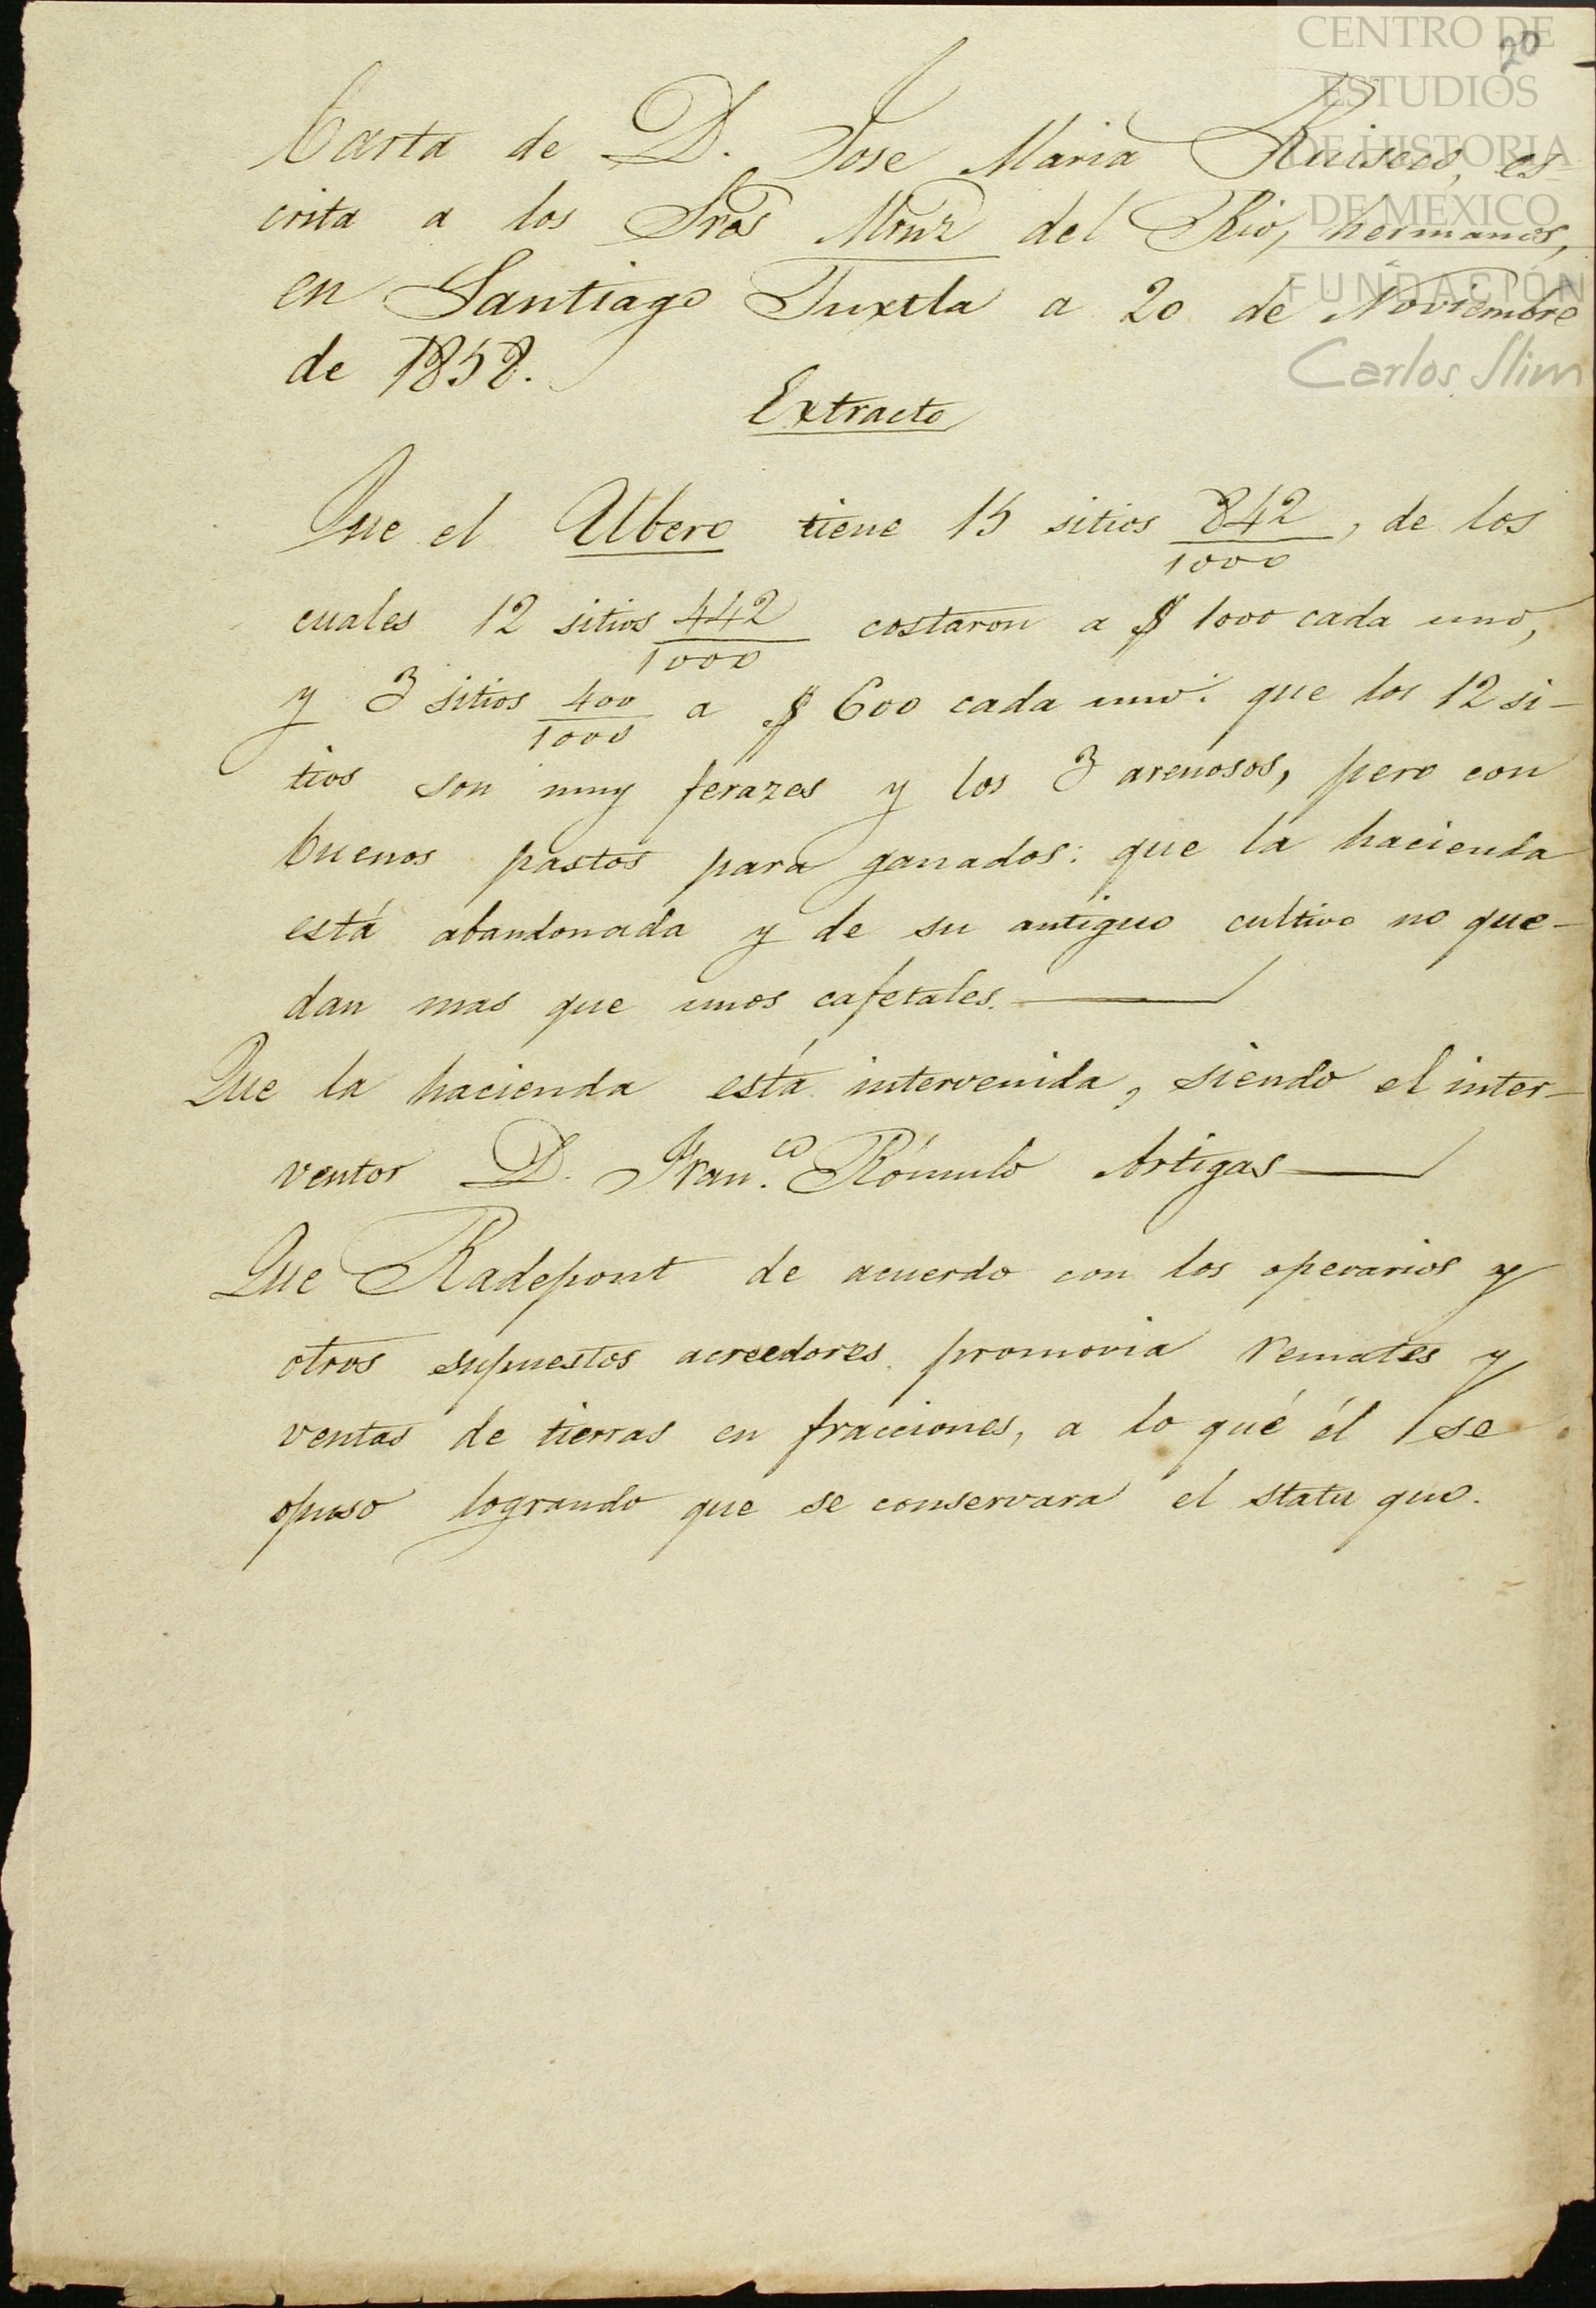 20
CENTRO DE
ESTUDIOS
DE HISTORIA
DE MÉXICO
FUNDACIÓN
Carlos Slim
Carta de D. Jose Maria Ruiseco, es-
crita a los Sres Mrnz del Rio, hermanos,
en Santiago Tuxtla a 20 de Noviembre
de 1858.
Extracto
Que el Ubero tiene 15 sitios 842/1000, de los
cuales 12 sitios 442/1000 costaron a $ 1000 cada uno,
y 3 sitios 400/1000 a $ 600 cada uno: que los 12 si-
tios son muy feraces y los 3 arenosos, pero con
buenos pastos para ganados: que la hacienda
está abandonada y de su antiguo cultivo no que-
dan mas que unos cafetales.
Que la hacienda está intervenida, siendo el inter-
ventor D. Fran.co Rómulo Artigas
Que Radepont de acuerdo con los operarios y
otros supuestos acreedores promovia remates y
ventas de tierras en fracciones, a lo qué él se
opuso logrando que se conservara el statu quo.